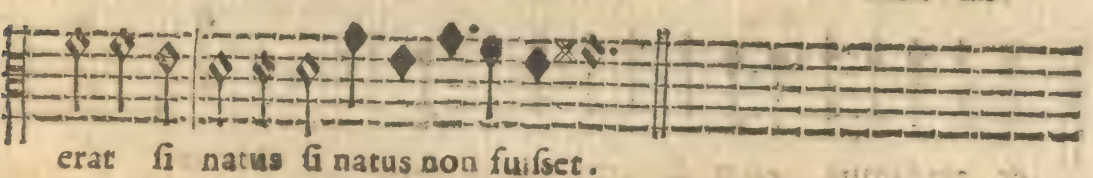 erat ſi natus ſi natus non fuiſſet.